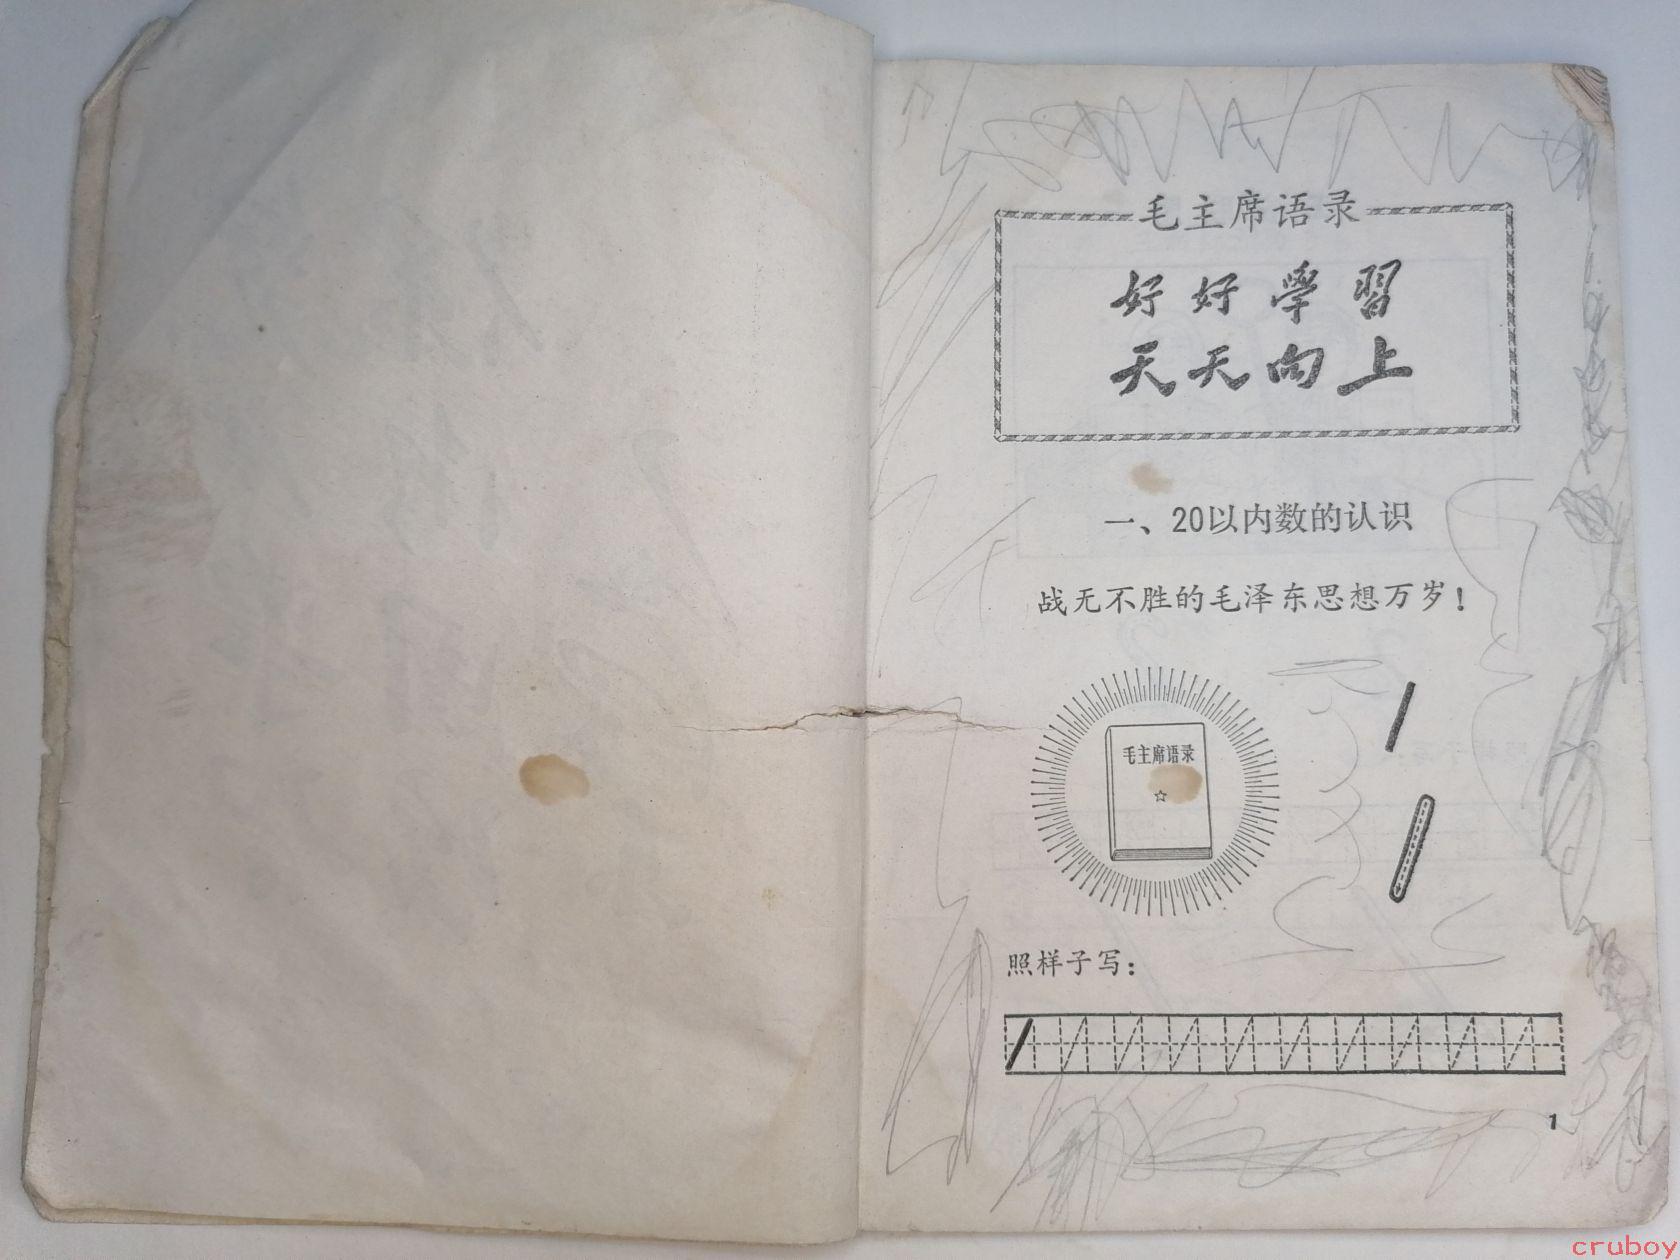 毛主席语录
好好學習
天天向上
一、20以内数的认识
战无不胜的毛泽东思想万岁！
毛主席语录
1
1
照样子写：
1
1
cruboy